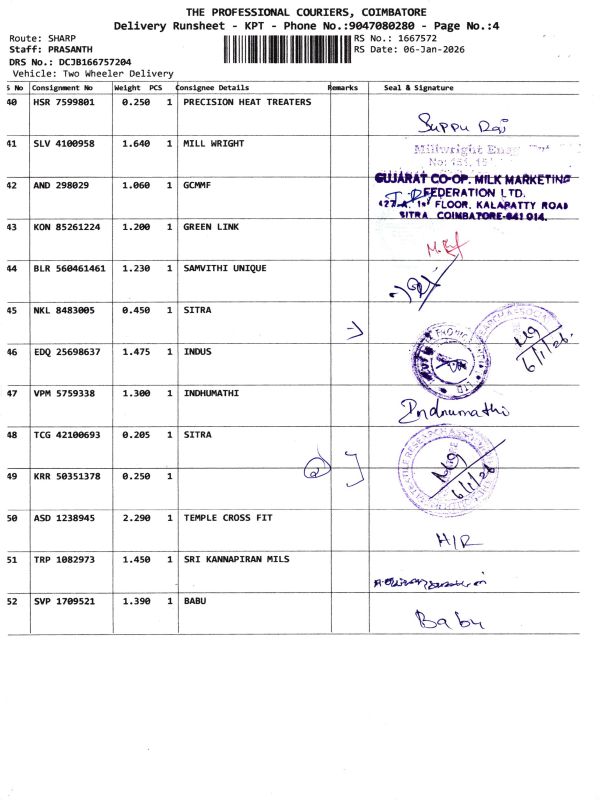 THE PROFESSIONAL COURIERS, COIMBATORE
Delivery Runsheet - KPT - Phone No.:9047080280 - Page No.:4
Route: SHARP
RS No.: 1667572
Staff: PRASANTH
RS Date: 06-Jan-2026
DRS No.: DCJB166757204
Vehicle: Two Wheeler Delivery
S No Consignment No Weight PCS Consignee Details Remarks Seal & Signature
40 HSR 7599801 0.250 1 PRECISION HEAT TREATERS
Suppu Raj
41 SLV 4100958 1.640 1 MILL WRIGHT
Millwright Engg
42 AND 298029 1.060 1 GCMMF
GUJARAT CO-OP. MILK MARKETING
FEDERATION LTD.
FLOOR, KALAPATTY ROAD
SITRA COIMBATORE-641 014.
43 KON 85261224 1.200 1 GREEN LINK
44 BLR 560461461 1.230 1 SAMVITHI UNIQUE
45 NKL 8483005 0.450 1 SITRA
6/1/26
46 EDQ 25698637 1.475 1 INDUS
47 VPM 5759338 1.300 1 INDHUMATHI
Indhumathi
48 TCG 42100693 0.205 1 SITRA
6/1/26
49 KRR 50351378 0.250 1
50 ASD 1238945 2.290 1 TEMPLE CROSS FIT
H/R
51 TRP 1082973 1.450 1 SRI KANNAPIRAN MILS
52 SVP 1709521 1.390 1 BABU
Babu